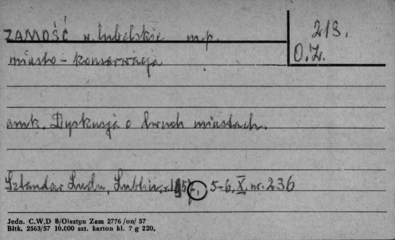 ZAMOŚĆ w. lubelskie m.p.
213.
O.Z.
miasto - konserwacja
amk. Dyskusja o dwuch miastach.
Sztandar Ludu, Lublin, 5-6. X. nr. 236
Jedn. C.W.D B/Olsztyn Zam 2776 /on/ 57
Bltk. 2563/57 10.000 szt. karton kl. 7 g 220.